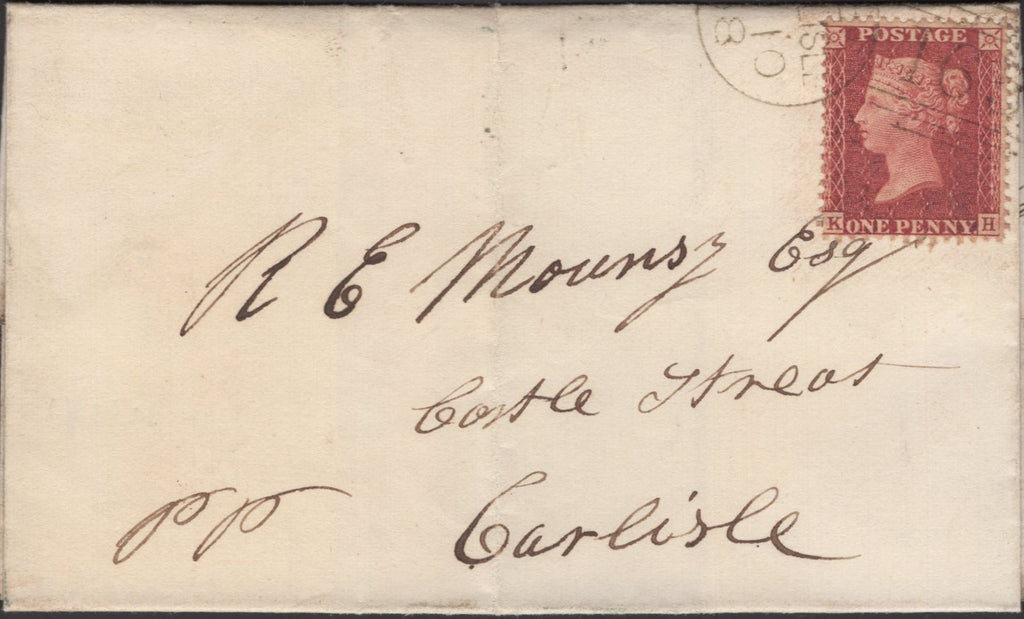 POSTAGE
K ONE PENNY H
8
10
R E Mounsy Esq
Castle Street
pp Carlisle